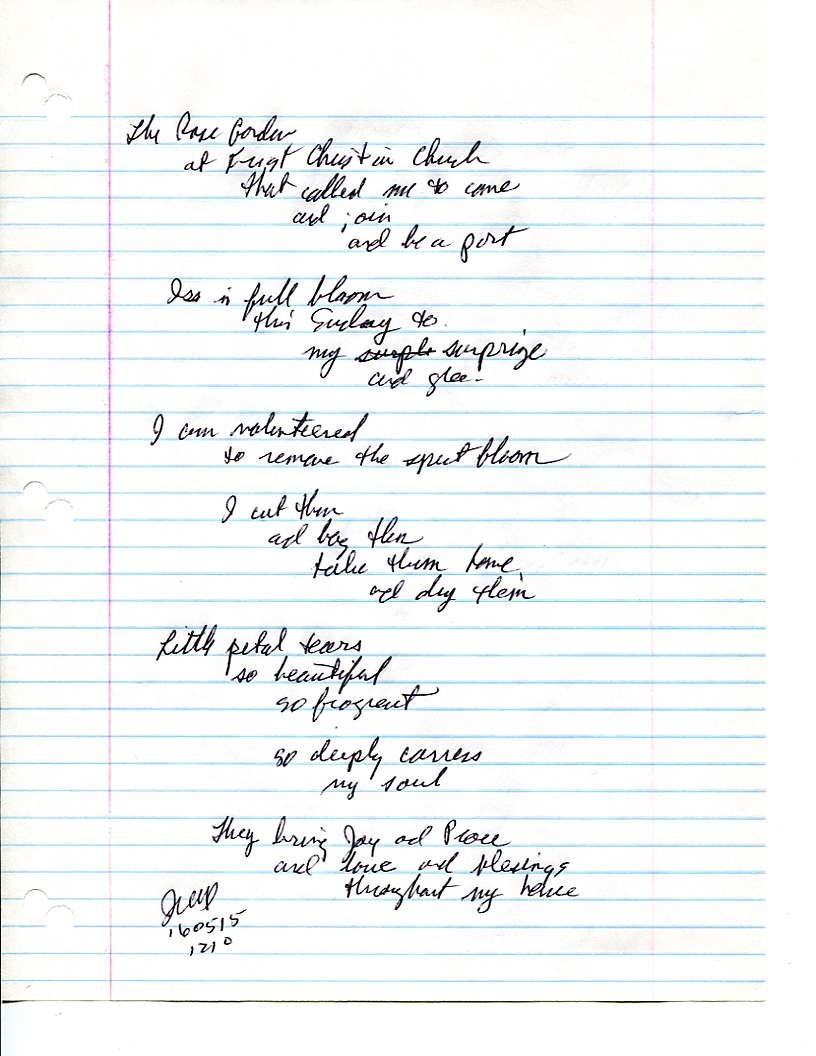 The Rose Garden
at First Christian Church
that called me to come
and join
and be a part
Iss in full bloom
this Sunday to
my surprize
and glee.
I am volunteered
to remove the spent bloom
I cut them
and bag them
take them home,
and dry them
Little petal tears
so beautiful
so fragrant
so deeply carress
my soul
They bring Joy and Peace
and love and blessings
throughout my house
160515
1210